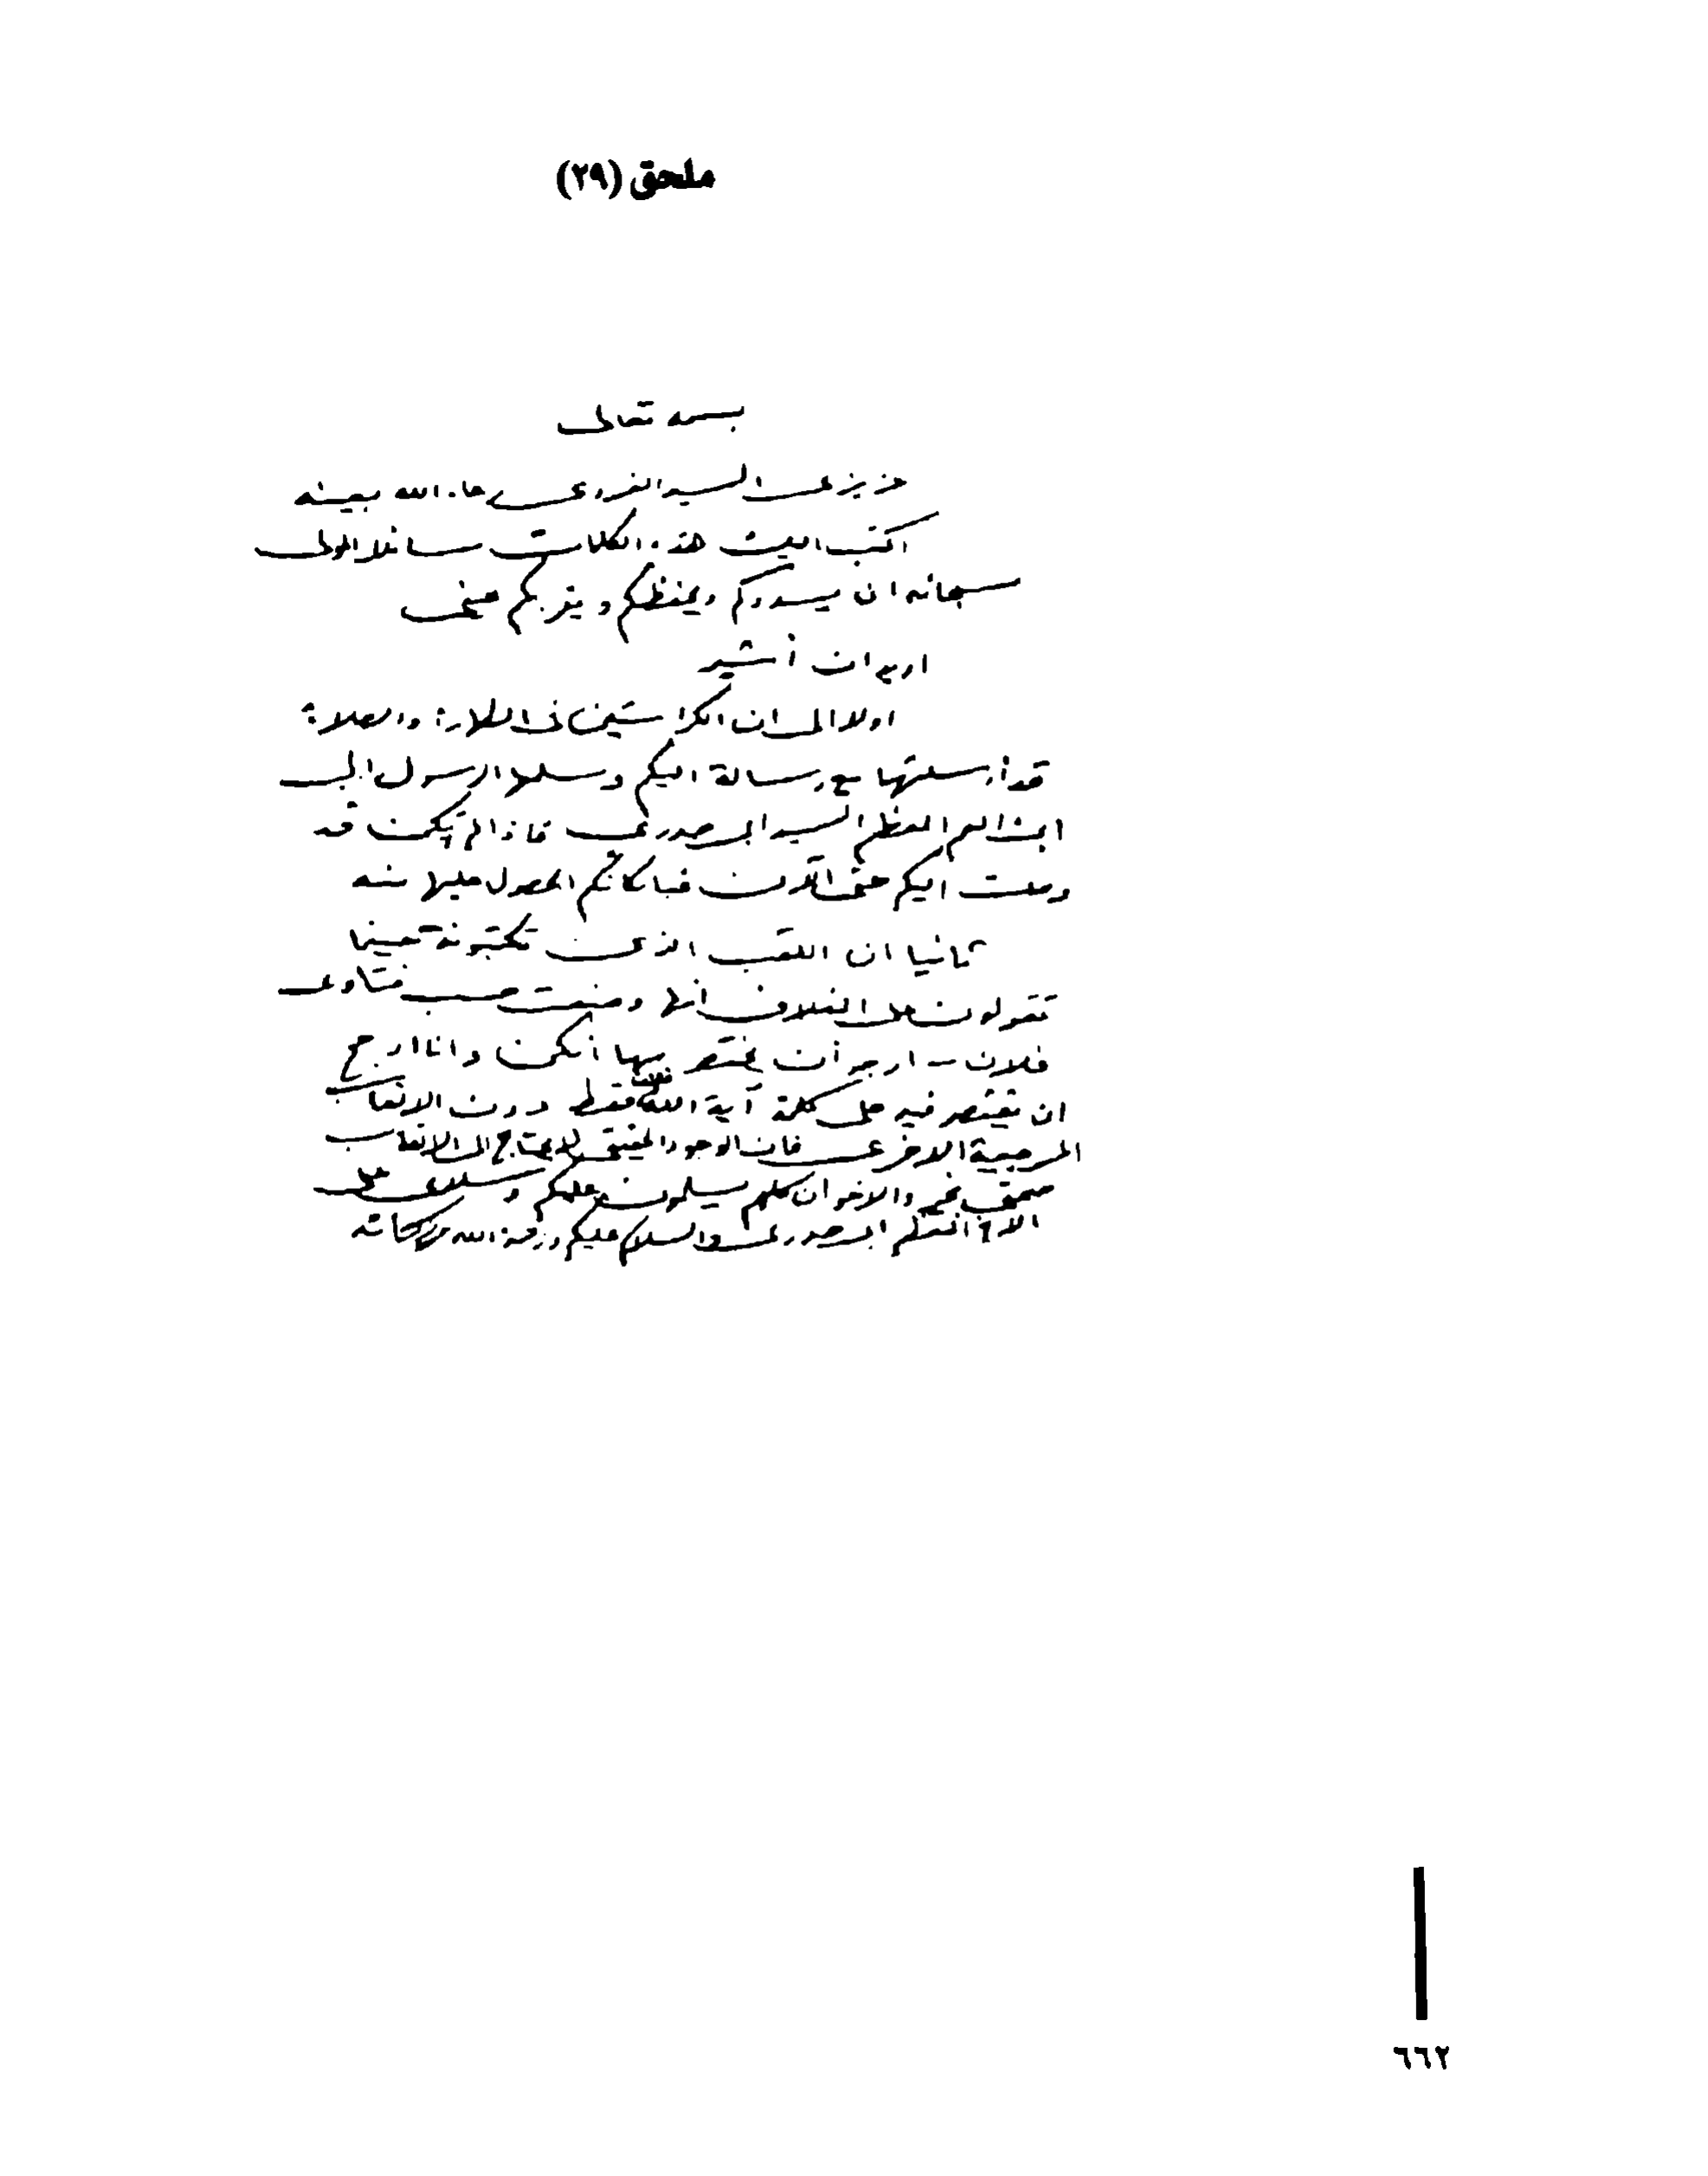 ملحق (٢٩)
بسمه تعالى
عزيزي السيد الغروي رعاه الله بعينه
اكتب اليك هذه الكلمات سائلا المولى
سبحانه ان يسددكم ويحفظكم ويقر بكم عيني
اريد ان أشير
اولا الى ان الكراستين في الطهارة والصلاة
قد أرسلتها مع رسالة اليكم وسلمها الرسول الى
ابن العم المعظم السيد ابي صدري فاذا لم يكن قد
وصلت اليكم حتى الآن فبامكانكم الحصول عليها منه
ثانيا ان اللقب الذي تكتبونه حينما
تقولون على الغلاف انها وضعت حسب فتاوى
فلان - ارجو أن يختصر مهما أمكن وانا ارجح
ان تقتصر فيه على كلمة آية الله فلان فقط دون الالقاب
المرجعية الاخرى فان الوجود الحقيقي لا يحتاج الى الالقاب
والاخوان كلهم يسلمون عليكم وسلامي على
الاخ المعظم ابي صدري والسلام عليكم ورحمة الله وبركاته
٦٦٢